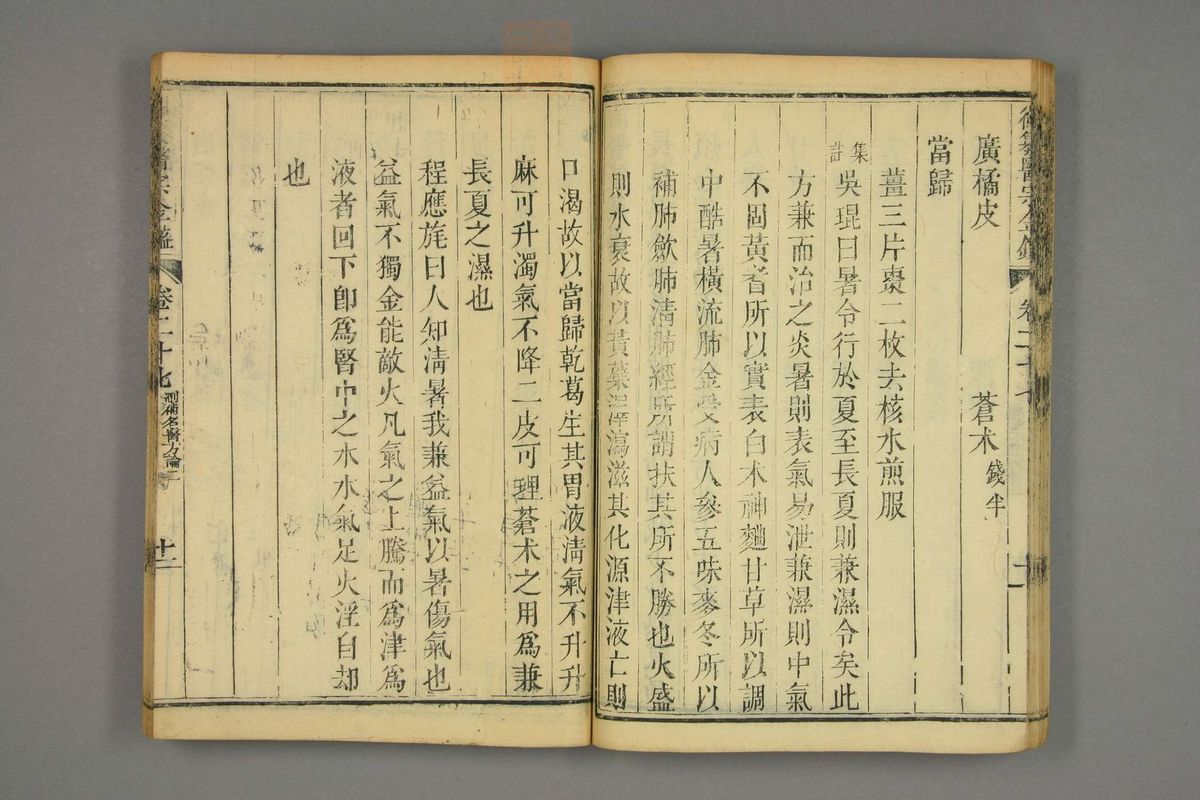 御纂醫宗金鑑 卷二十七 十一
廣橘皮 蒼朮錢半
當歸
薑三片棗二枚去核水煎服
集註吳琨曰暑令行於夏至長夏則兼濕令矣此
方兼而治之炎暑則表氣易泄兼濕則中氣
不固黃耆所以實表白朮神麯甘草所以調
中酷暑橫流肺金受病人參五味麥冬所以
補肺歛肺清肺經所謂扶其所不勝也火盛
則水衰故以黃蘗澤瀉滋其化源津液亡則
口渴故以當歸乾葛生其胃液清氣不升升
麻可升濁氣不降二皮可理蒼朮之用為兼
長夏之濕也
程應旄曰人知清暑我兼益氣以暑傷氣也
益氣不獨金能敵火凡氣之上騰而為津為
液者回下卽為腎中之水水氣足火淫自却
也
醫宗金鑑 卷二十七 刪補名醫方論二 十二